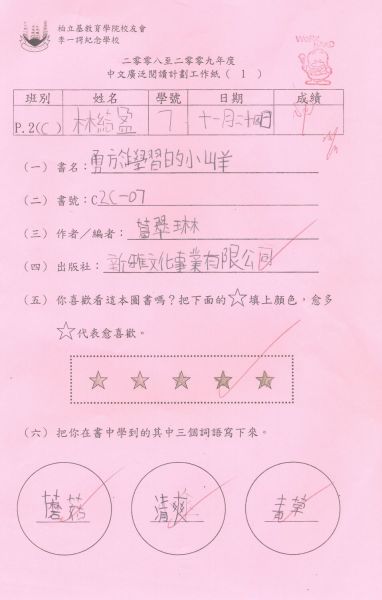 柏立基教育學院校友會
李一諤紀念學校
二零零八至二零零九年度
中文廣泛閱讀計劃工作紙(1)
班別 姓名 學號 日期 成績
P.2(C) 林結盈 7 十一月二十四日
(一) 書名:勇於學習的小山羊
(二) 書號:C2C-07
(三) 作者/編者:萬翠琳
(四) 出版社:新雅文化事業有限公司
(五) 你喜歡看這本圖書嗎?把下面的☆填上顏色,愈多
☆代表愈喜歡。
(六) 把你在書中學到的其中三個詞語寫下來。
蘑菇 清爽 青草